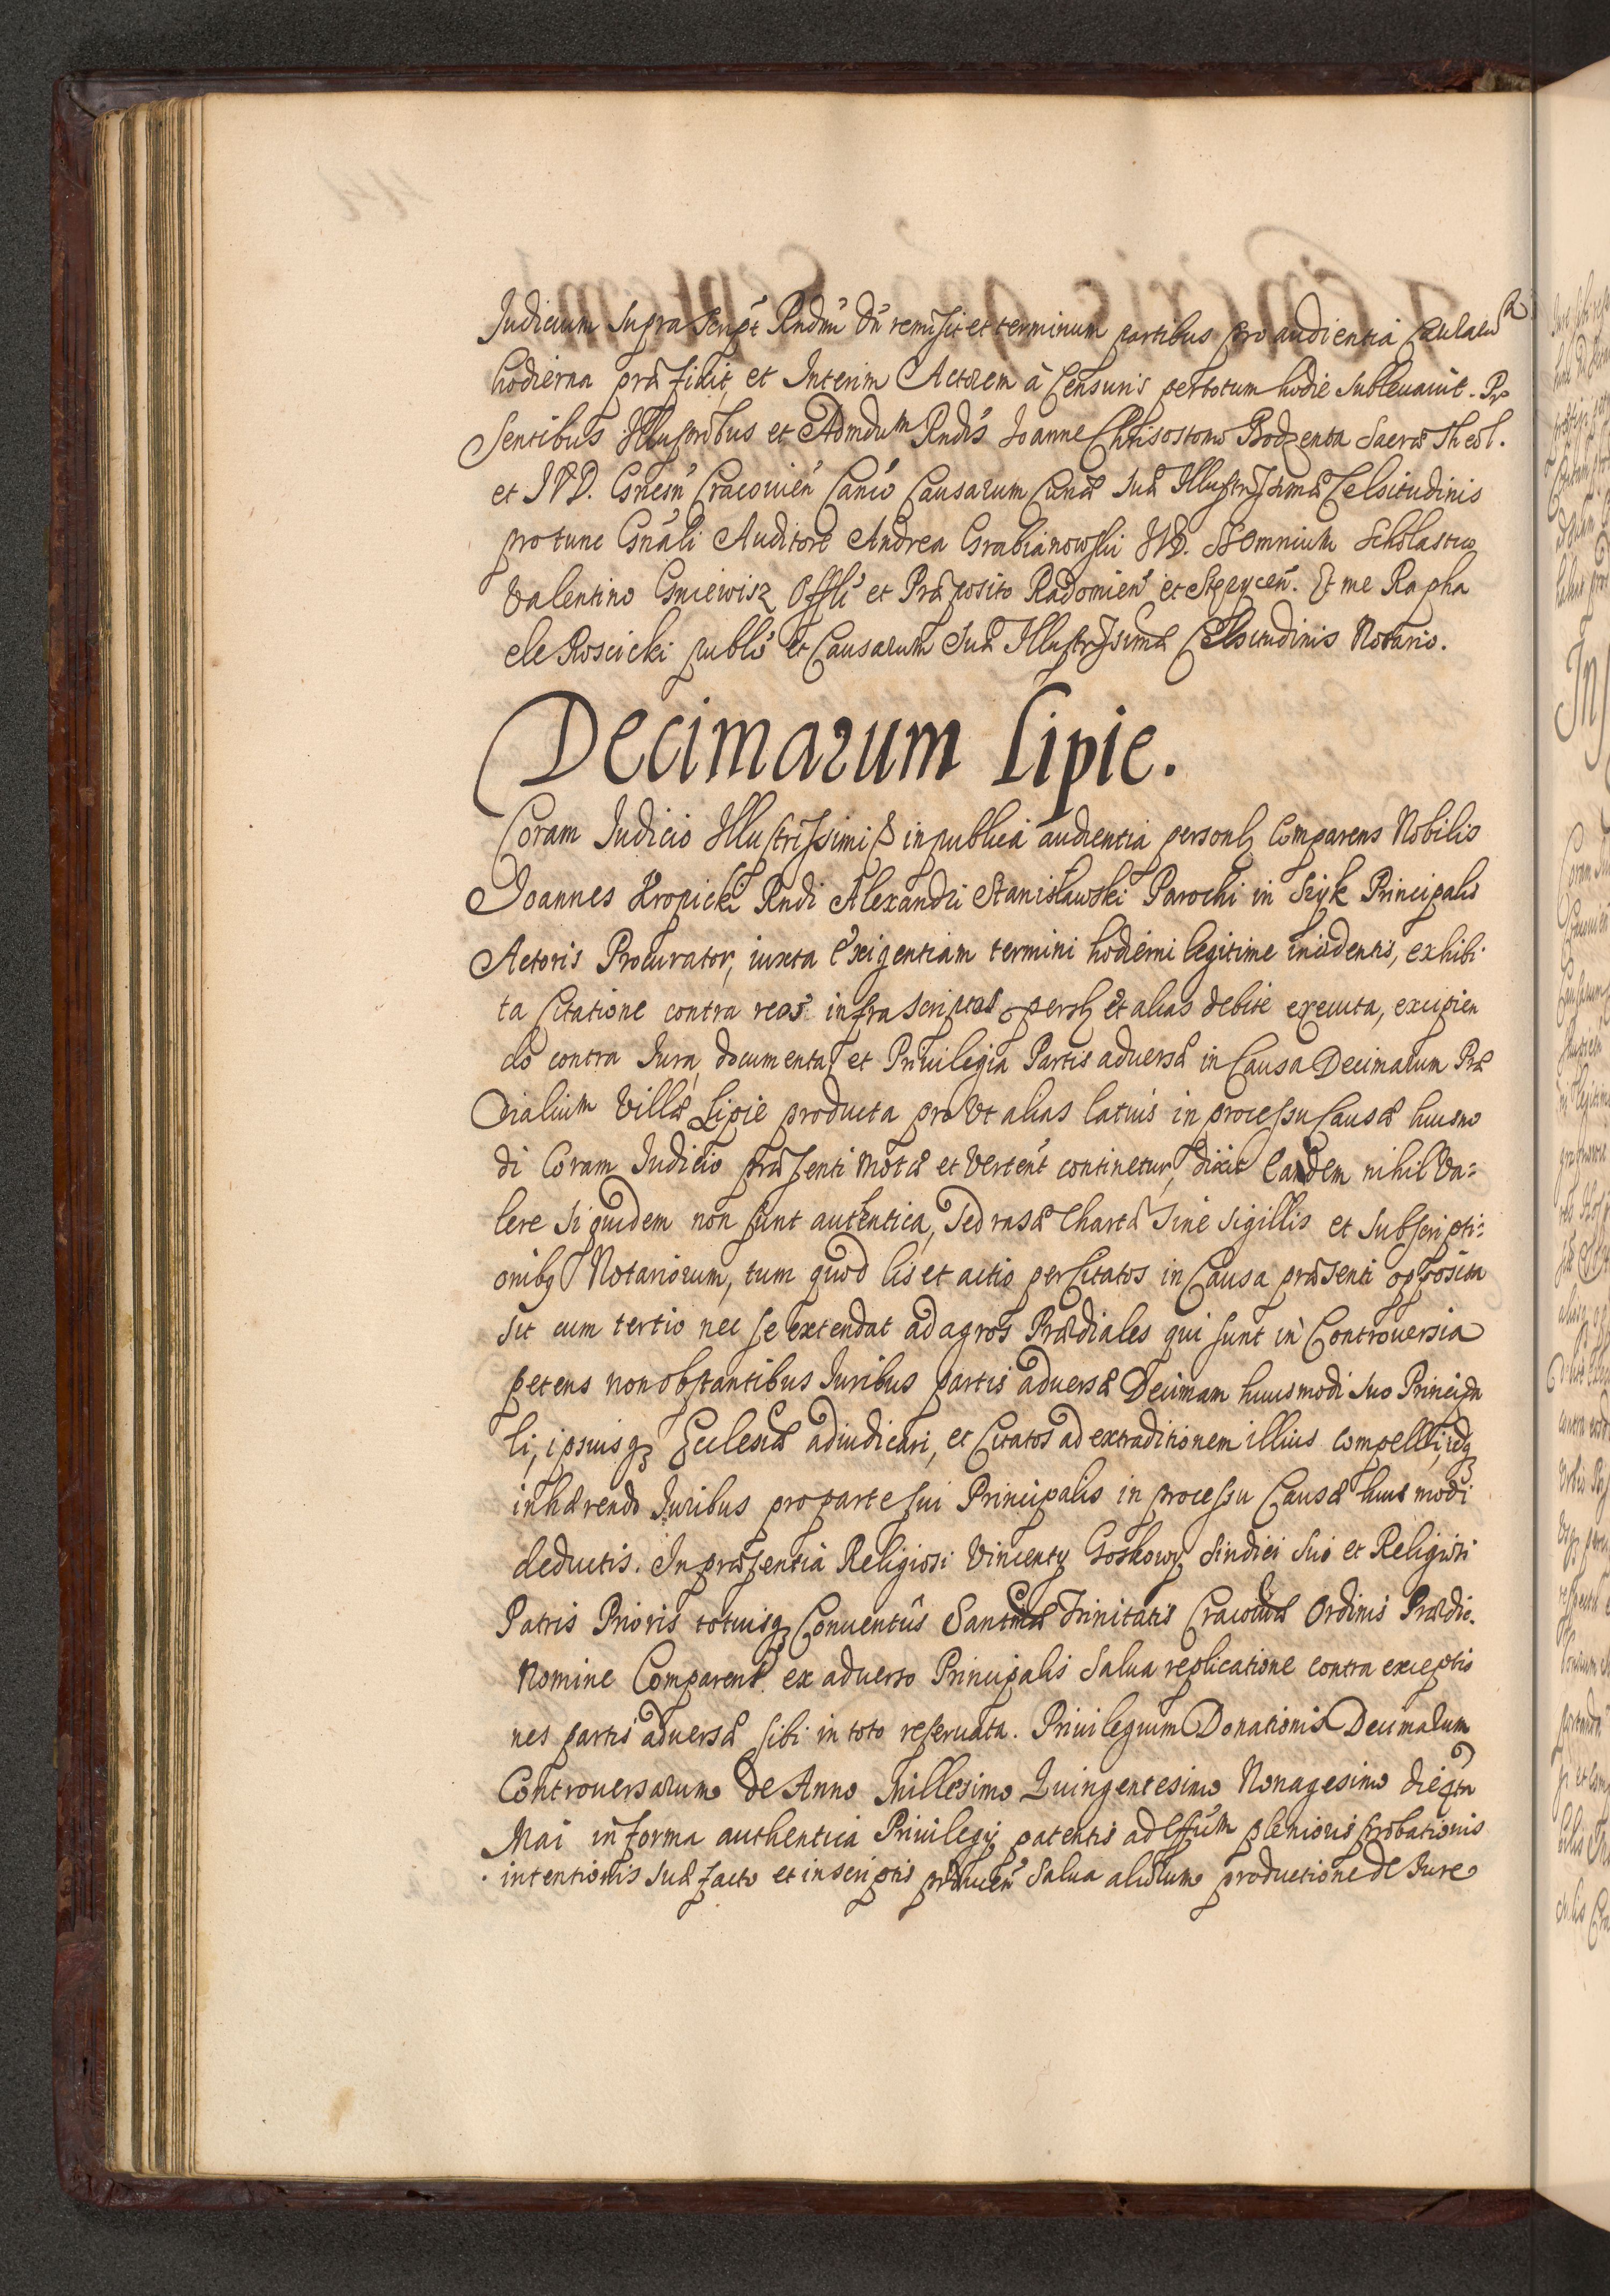 Judicium supra script Rndm̃ Dn̄ remisit et terminum partibus pro audientia causarum
hodierna præfixit, et Interim Actorem à Censuris per totum hodie subleuauit. Præ
sentibus Illustribus et Admdum Rndis Joanne Chrisostomo Bodzenta Sacræ Theol.
et IVD. Gnesñ Cracouień Canco Causarum Curiæ Suæ Illustrissimæ Celsitudinis
pro tunc Gnãli Auditore Andrea Grabianowski IVD. Scholastico
Valentino Gniewisz Offli et Præposito Radomień et Steżyceń. Et me Rapha
ele Roscicki publo et Causarum Suæ Illustrissimæ Celsitudinis Notario.
Decimarum Lipie.
Coram Judicio Illustrissimi & in publica audientia personlr Comparens Nobilis
Joannes Kropicki Rndi Alexandri Stanisławski Parochi in Principalis
Actoris Procurator, iuxta exigentiam termini hodierni legitime incidentis, exhibi
ta Citatione contra reos infrascriptos et alias debite executa, excipien
do contra Iura, documenta, et Priuilegia Partis aduersæ in Causa Decimarum Præ
dialium Villæ Lipie producta pro Vt alias latius in processu Causæ huiusmo
di Coram Judicio præsenti motæ et Vertent continetur, dixit Eandem nihil Va=
lere siquidem non sunt autentica, sed rasæ chartæ sine sigillis et subscripti=
onibq Notariorum, tum quod lis et actio per Citatos in Causa præsenti opposita
sit cum tertio nec se extendat ad agros Prædiales qui sunt in Controuersia
petens non obstantibus Iuribus partis aduersæ Decimam huiusmodi suo Principa
li, ipsiusqz Ecclesiæ adiudicari, et Citatos ad extraditionem illius compelli, idqz
inhærendo Iuribus pro parte sui Principalis in processu Causæ huiusmodi
deductis. In præsentia Religiosi Vincenty Goskowy Sindici sui et Religiosi
Patris Prioris totiusqz Conuentûs Sanctmæ Trinitatis Cracouiæ Ordinis Prædic.
Nomine Comparent. ex aduerso Principalis Salua replicatione contra exceptio
nes partis aduersæ sibi in toto reseruata. Priuilegium Donationis Decimarum
Controuersarum de Anno Millesimo Quingentesimo Nonagesimo die 9na
Mai in forma authentica Priuilegij patentis ad effũm plenioris probationis
intentionis suæ facto et in scriptis producen̄ Salua aliorum productione de Iure